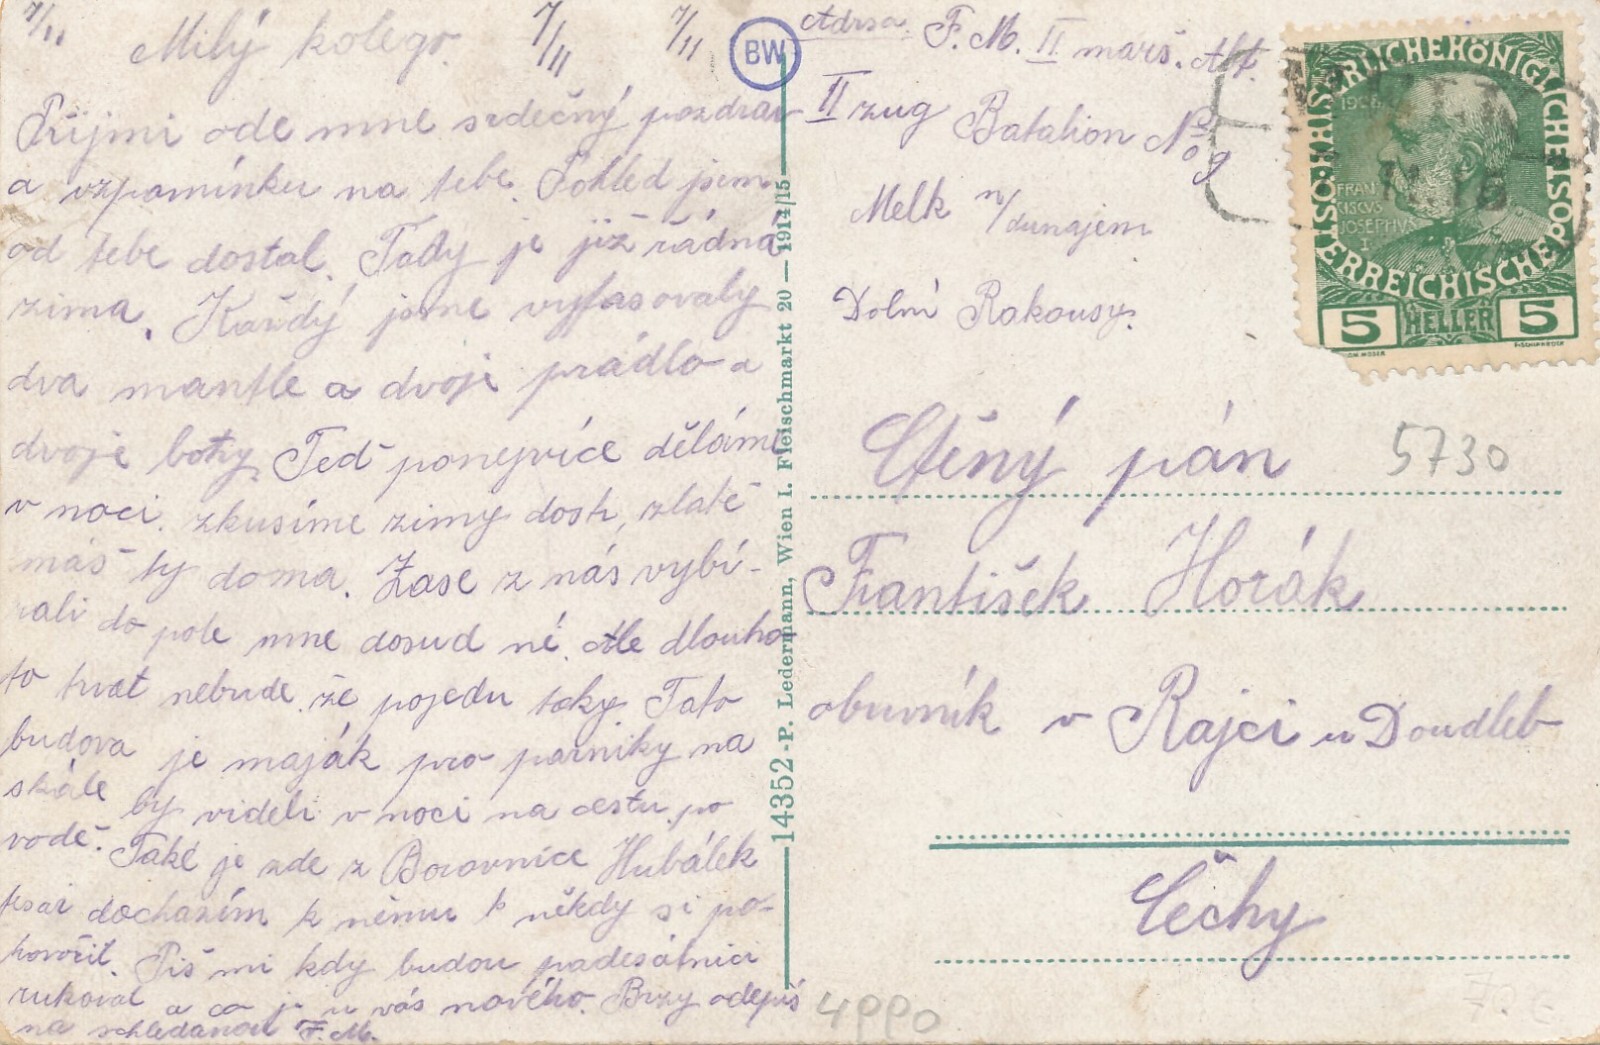 7/11 7/11 7/11
Milý kolego.
Přijmi ode mne srdečný pozdrav
a vzpomínku na tebe. Pohled jsem
od tebe dostal. Tady je již řádná
zima. Každý jsme vyfasovaly
dva mantle a dvoje prádlo a
dvoje boty. Teď ponejvíce děláme
v noci. zkusíme zimy dost, zlatě
máš ty doma. Zase z nás vybí-
rali do pole mne dosud né. Ale dlouho
to trvat nebude, že pojedu taky. Tato
budova je maják pro parníky na
skále by viděli v noci na cestu po
vodě. Také je zde z Borovnice Hubálek
tesař docházím k němu
někdy si po-
hovořit. Piš mi kdy budou padesátníci
rukovat a co je u vás nového. Brzy odepiš
na schledanou F.M.
BW
14352 - P. Ledermann, Wien I. Fleischmarkt 20 — 1914/15
Adrsa. F. M. II marš. Abt.
II zug Batalion No 9
Melk n/dunajem
Dolní Rakousy.
1908
FRANCISCVS JOSEPHVS I
KAISERLICHEKÖNIGLICHEÖSTERREICHISCHEPOST
5 HELLER 5
Ctěný pán
5730
František Horák
obuvník v Rajci u Doudleb
Čechy
4990